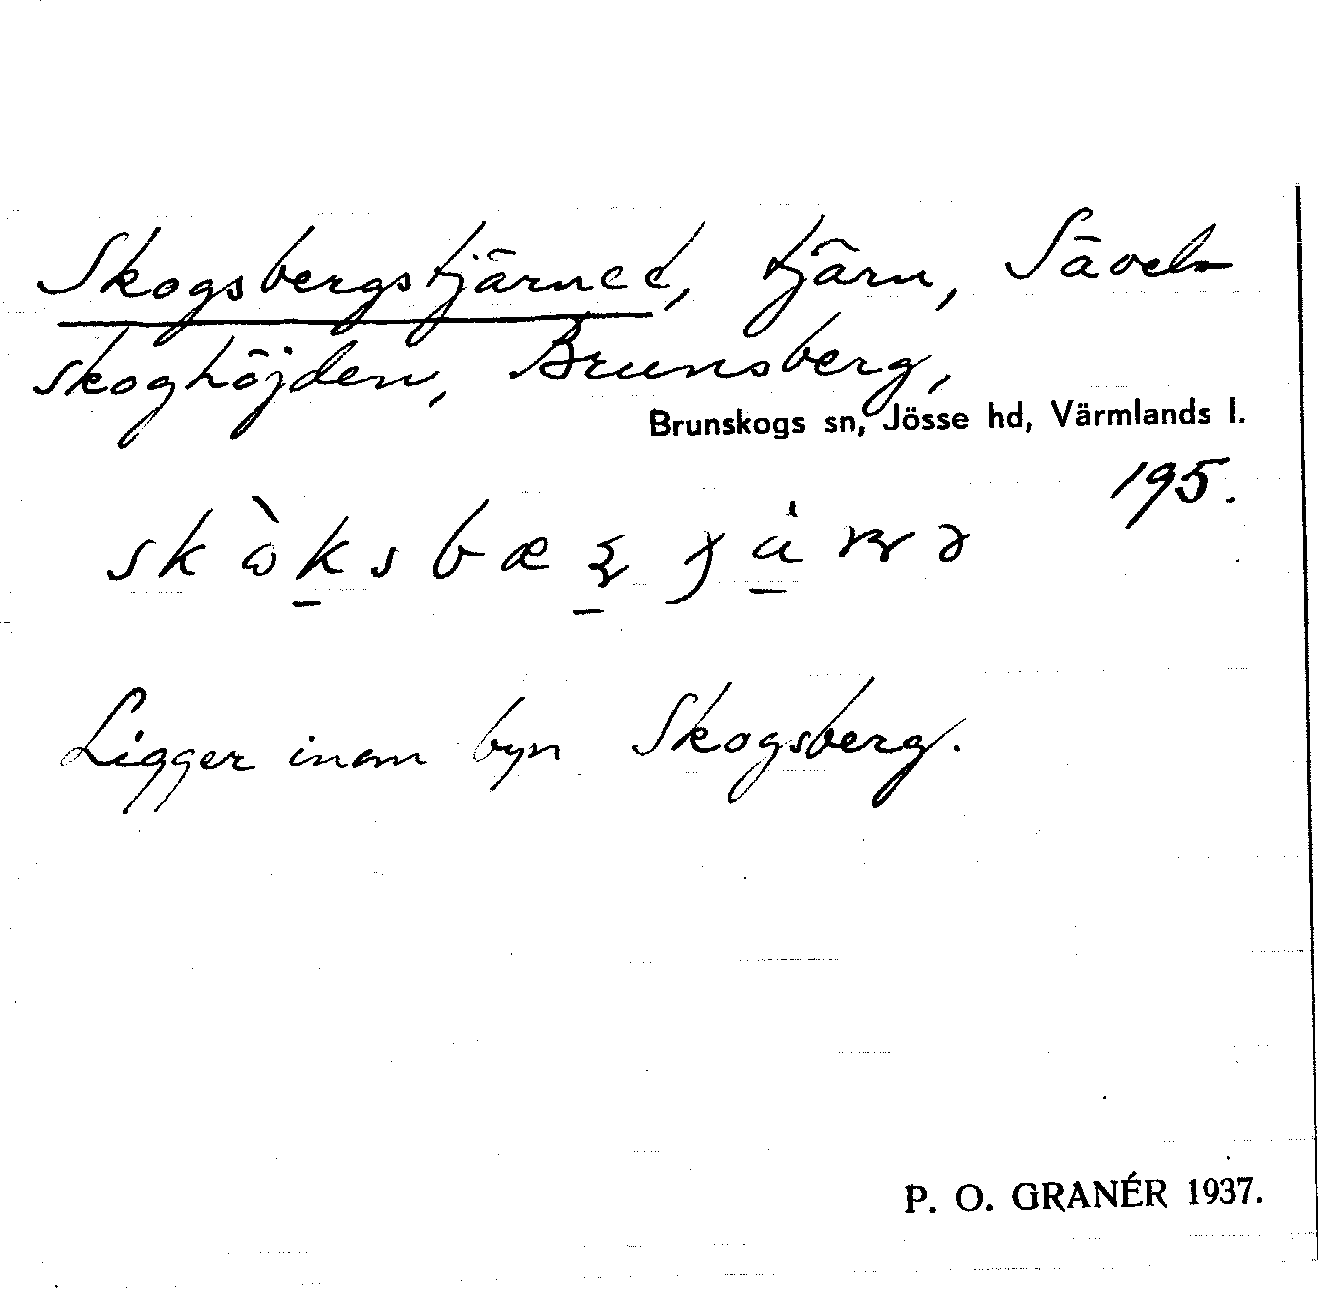 Skogsbergstjärnet, tjärn, Sävel-
skoghöjden, Brunsberg,
Brunskogs sn, Jösse hd, Värmlands l.
195.
Ligger inom byn Skogsberg.
P. O. GRANÉR 1937.